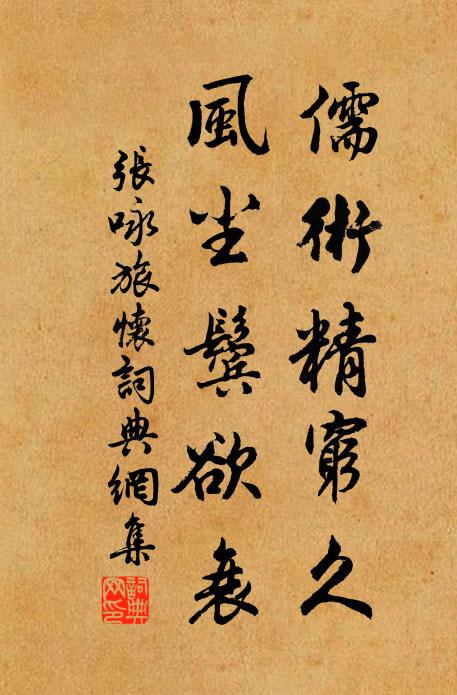 儒術精窮久
風尘鬓欲衰
張咏旅懷詞典網集
詞典网印